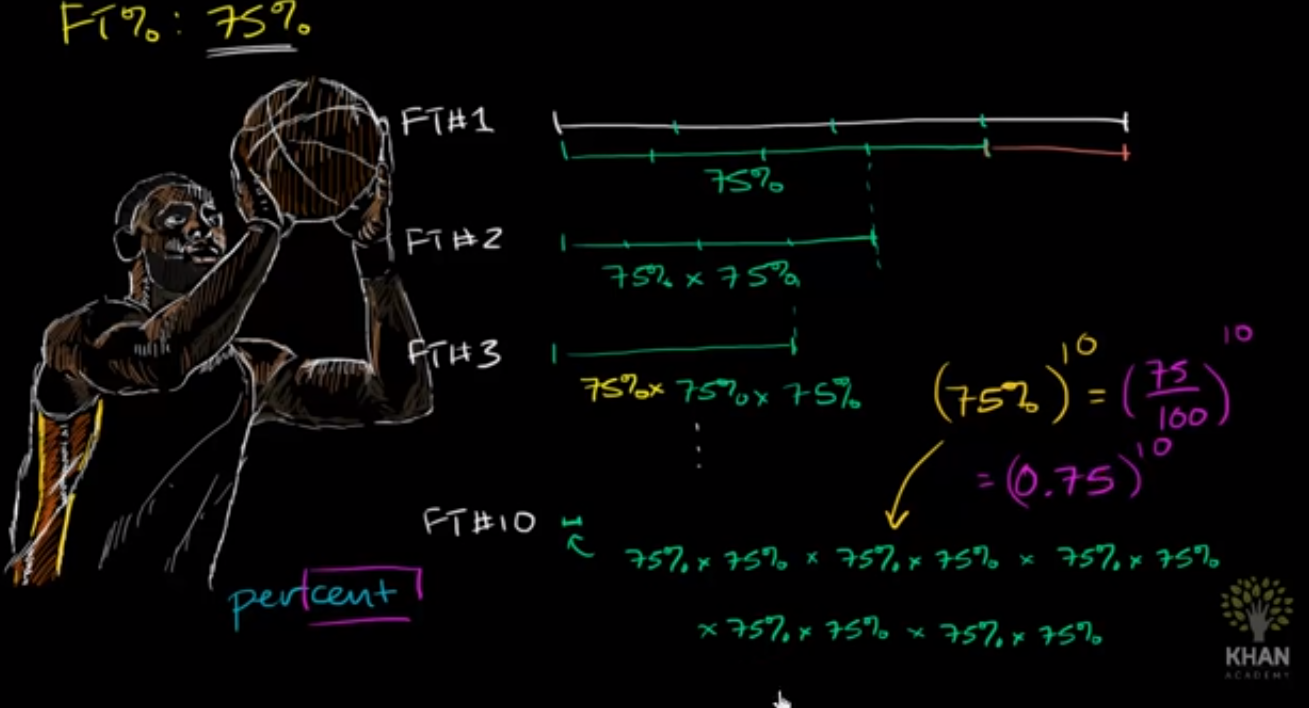 FT%: 75%
FT#1
75%
FT#2
75% x 75%
FT#3
75% x 75% x 75%
(75%)^10 = (75/100)^10
= (0.75)^10
FT#10
75% x 75% x 75% x 75% x 75% x 75%
x 75% x 75% x 75% x 75%
percent
KHAN
ACADEMY